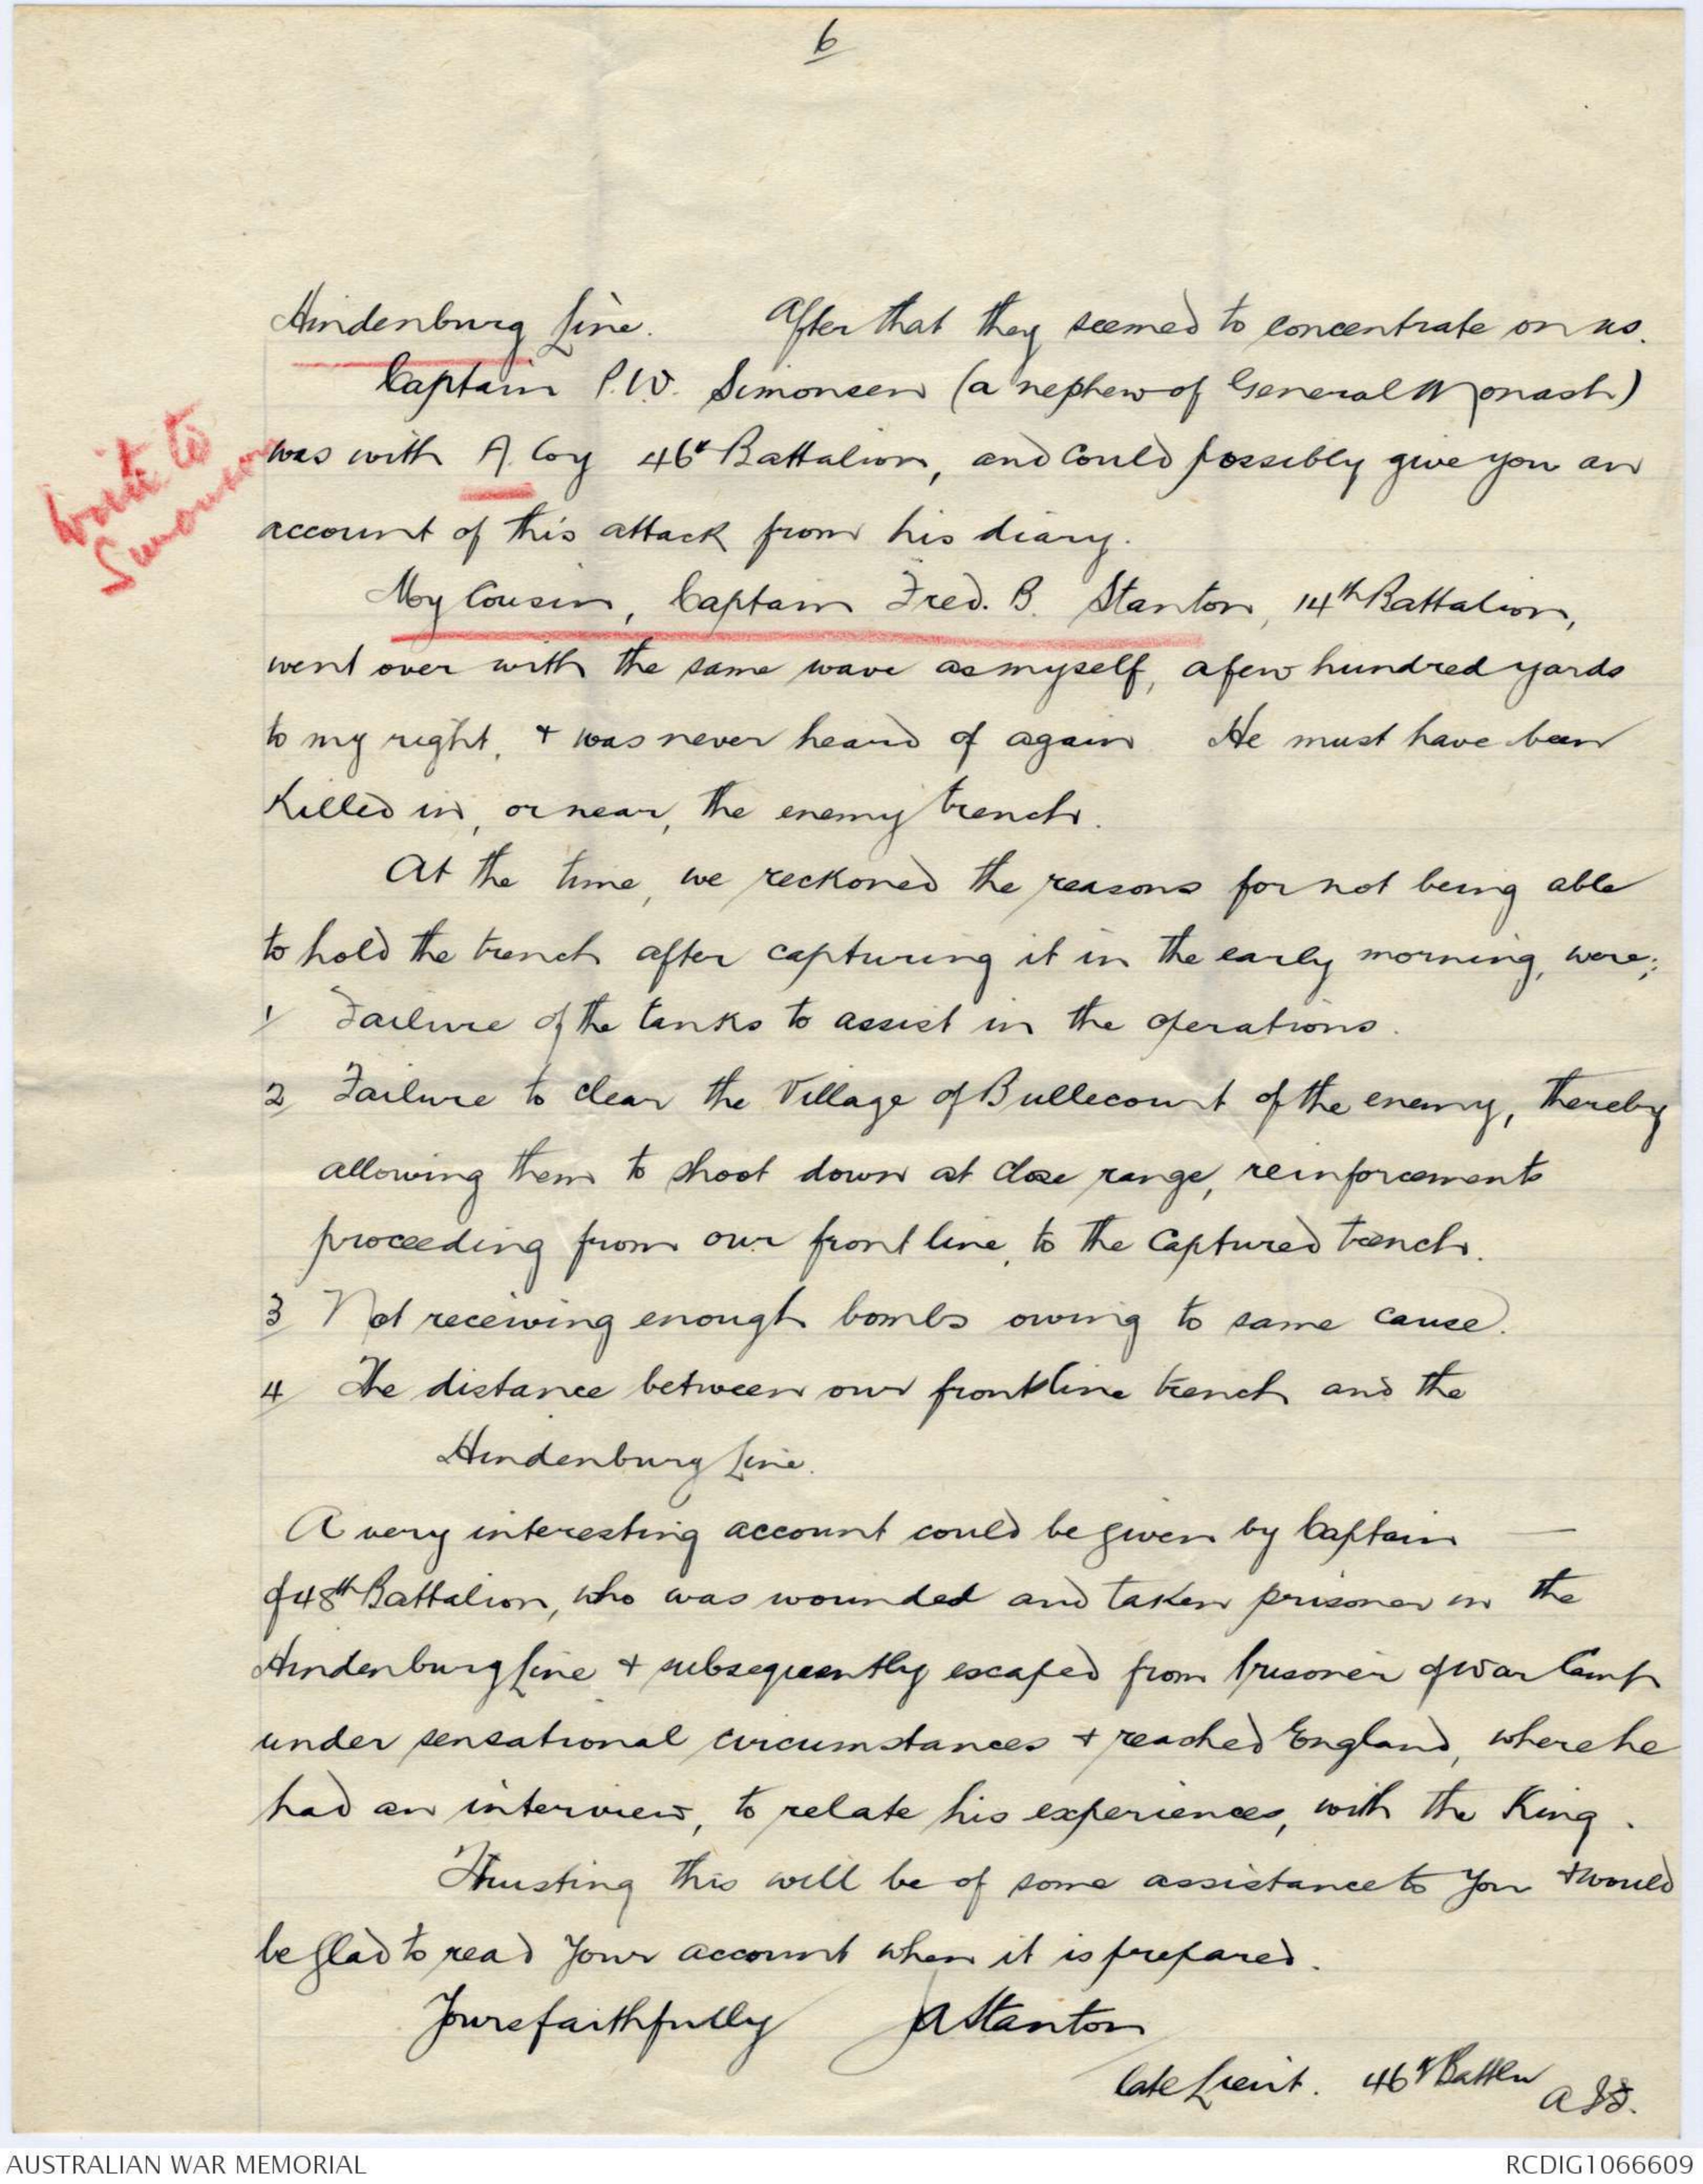 6
Hindenburg Line. After that they seemed to concentrate on us.
Captain P.W. Simonsen (a nephew of General Monash)
was with A. Coy 46th Battalion, and could possibly give you an
account of this attack from his diary.
Write to
Simonsen
My Cousin, Captain Fred. B. Stanton, 14th Battalion,
went over with the same wave as myself, a few hundred yards
to my right, + was never heard of again. He must have been
killed in, or near, the enemy trench.
At the time, we reckoned the reasons for not being able
to hold the trench after capturing it in the early morning, were;
1/ Failure of the tanks to assist in the operations.
2/ Failure to clear the Village of Bullecourt of the enemy, thereby
allowing them to shoot down at close range, reinforcements
proceeding from our front line, to the captured trench.
3/ Not receiving enough bombs owing to same cause.
4/ The distance between our front line trench and the
Hindenburg Line.
A very interesting account could be given by Captain —
of 48th Battalion, who was wounded and taken prisoner in the
Hindenburg Line + subsequently escaped from Prisoner of War Camp
under sensational circumstances + reached England, where he
had an interview, to relate his experiences, with the King.
Trusting this will be of some assistance to you + would
be glad to read your account when it is prepared.
Yours faithfully JA Stanton
late Lieut. 46th Battln
A.I.F.
AUSTRALIAN WAR MEMORIAL
RCDIG1066609